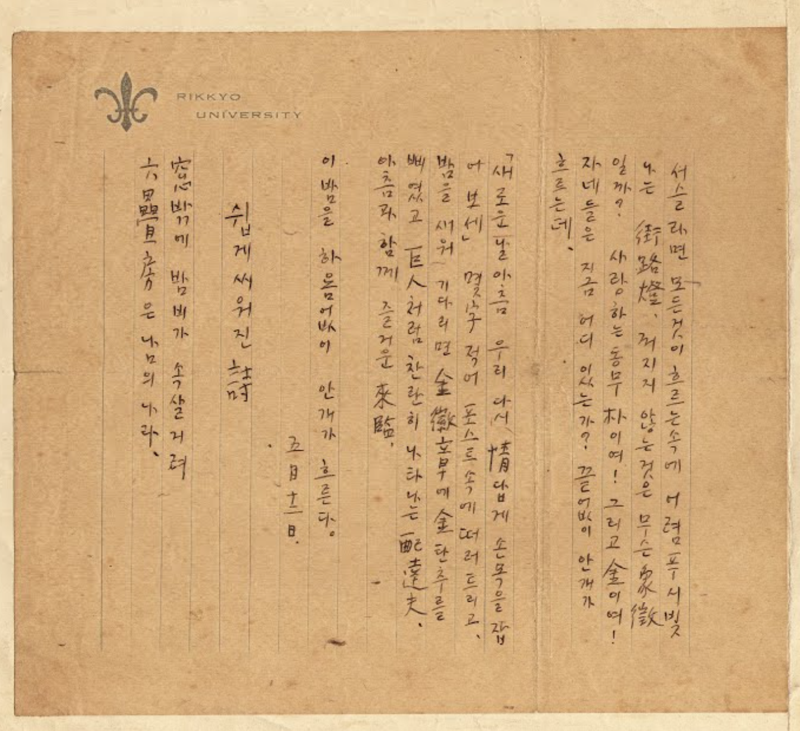 RIKKYO
UNIVERSITY
서슬라면 모든것이 흐르는속에 어렴푸시빛
나는 街路燈、꺼지지 않는것은 무슨象徵
일까? 사랑하는동무 朴이여! 그리고 金이여!
자네들은 지금 어디 있는가? 끝없이 안개가
흐르는데、
「새로운날아츰 우리 다시 情답게 손목을 잡
어 보세」 몇字 적어 포스트속에 떠러트리고、
밤을 새워 기다리면 金徽章에 金단추를
삐였고 巨人처럼 찬란히 나타나는 配達夫、
아츰과 함께 즐거운 來臨、
이밤을 하욤없이 안개가 흐른다。
五月十二日.
쉽게씨워진 詩
窓밖에 밤비가 속살거려
六疊房은 남의나라、